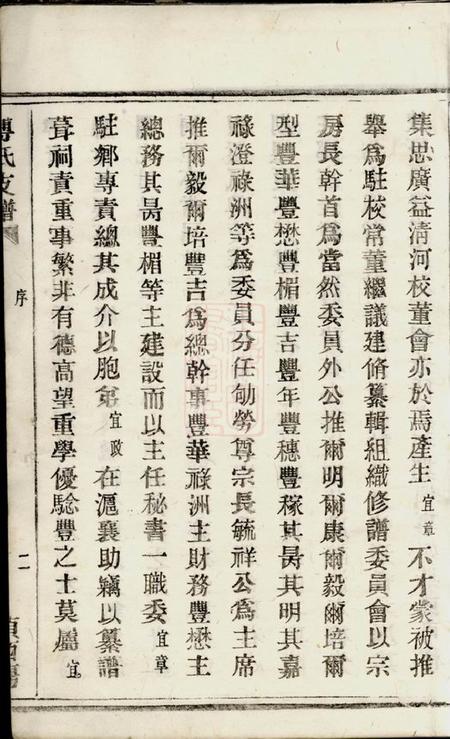 集思廣益清河校董會亦於焉產生宜章不才蒙被推
舉為駐校常董繼議建脩纂輯組織修譜委員會以宗
房長幹首為當然委員外公推爾明爾康爾毅爾培爾
型豐華豐懋豐楣豐吉豐年豐穗豐稼其昺其明其嘉
祿澄祿洲等為委員分任劬勞尊宗長毓祥公為主席
推爾毅爾培豐吉為總幹事豐華祿洲主財務豐懋主
總務其昺豐楣等主建設而以主任秘書一職委宜章
駐鄉專責總其成介以胞弟宜政在滬襄助竊以纂譜
葺祠責重事繁非有德高望重學優驗豐之士莫屬宜
氏支譜
序
二